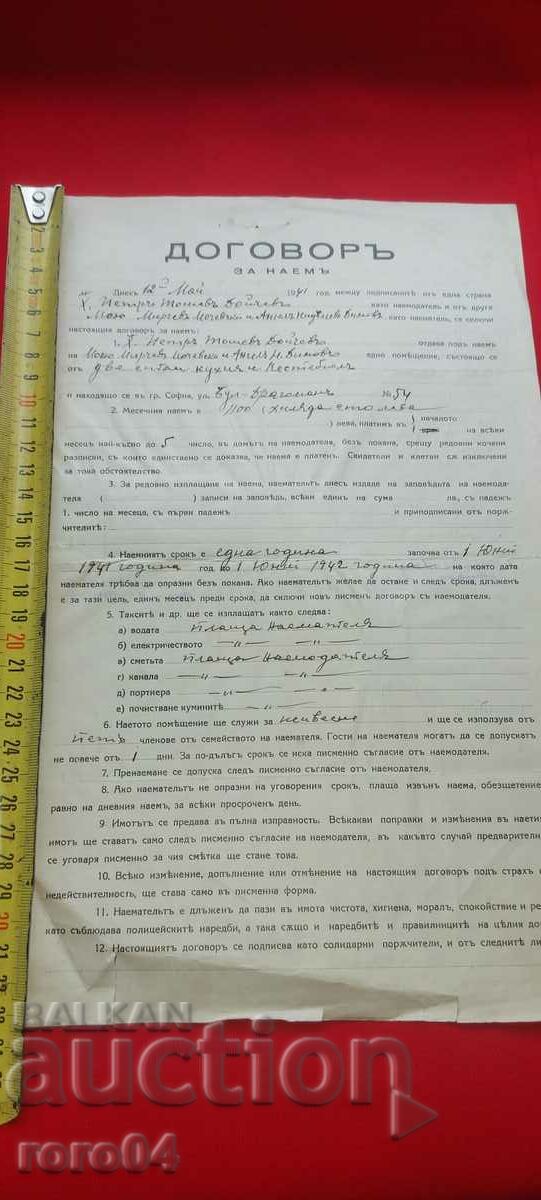 ДОГОВОРЪ
ЗА НАЕМЪ
Днесъ 12 Май 1941 год. между подписанитѣ отъ една страна
Х. Петъръ Тошевъ Дойчевъ като наемодатель и отъ друга
Моно Мирчевъ като наематель, се сключи
настоящия договоръ за наемъ:
1. Х. Петъръ Тошевъ Дойчевъ отдава подъ наемъ
на Моно Мирчевъ и Ангелъ Н. едно помѣщение, състояще се
отъ две стаи кухня и
и находящо се въ гр. София, ул. Бул. Драгоманъ № 54
2. Месечния наемъ е 1100 (хиляда сто лева
) лева, платимъ въ началото на всѣки
месецъ най-късно до 5 число, въ домътъ на наемодателя, безъ покана, срещу редовни кочени
разписки, съ които единствено се доказва, че наема е платенъ. Свидетели и клетви сѫ изключени
за това обстоятелство.
3. За редовно изплащане на наема, наемательтъ днесъ издаде на заповѣдьта на наемода-
теля ( ) записи на заповѣдь, всѣки единъ на сума лв., съ падежъ
1. число на месеца, съ първи падежъ и приподписани отъ порѫ-
чителитѣ:
4. Наемниятъ срокъ е една година започва отъ 1 Юний
1941 година год. до 1 Юний 1942 година на която дата
наемателя трѣбва да опразни безъ покана. Ако наемательтъ желае да остане и следъ срока, длъженъ
е за тази цель, единъ месецъ преди срока, да сключи новъ писменъ договоръ съ наемодателя.
5. Такситѣ и др. ще се изплащатъ както следва:
а) водата плаща наемателя
б) електричеството — „ — — „ —
в) сметьта плаща наемодателя
г) канала — „ — — „ —
д) портиера — „ — „ —
е) почистване куминитѣ — „ —
6. Наетото помѣщение ще служи за живеене и ще се използува отъ
петь членове отъ семейството на наемателя. Гости на наемателя могатъ да се допускатъ
не повече отъ 1 дни. За по-дълъгъ срокъ се иска писмено съгласие отъ наемодателя.
7. Пренаемане се допуска следъ писмено съгласие отъ наемодателя.
8. Ако наемательтъ не опразни на уговорения срокъ, плаща извънъ наема, обезщетение
равно на дневния наемъ, за всѣки просроченъ день.
9. Имотътъ се предава въ пълна изправность. Всѣкакви поправки и измѣнения въ наетия
имотъ ще ставатъ само следъ писмено съгласие на наемодателя, въ какъвто случай предварително
се уговаря писмено за чия смѣтка ще стане това.
10. Всѣко измѣнение, допълнение или отмѣнение на настоящия договоръ подъ страхъ
недействителность, ще става само въ писменна форма.
11. Наемательтъ е длъженъ да пази въ имота чистота, хигиена, моралъ, спокойствие и ре
като съблюдава полицейскитѣ наредби, а така сѫщо и наредбитѣ и правилницитѣ на цѣлия до
12. Настоящиятъ договоръ се подписва като солидарни порѫчители, и отъ следнитѣ ли
BALKAN
auction
roro04